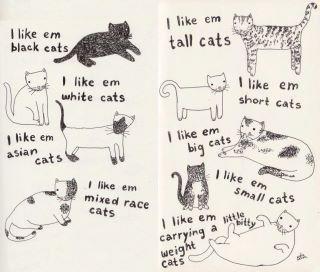 I like em
black cats
I like em
white cats
I like em
asian
cats
I like em
mixed race
cats
I like em
tall cats
I like em
short cats
I like em
big cats
I like em
small cats
I like em
carrying a little
bitty
weight
cats